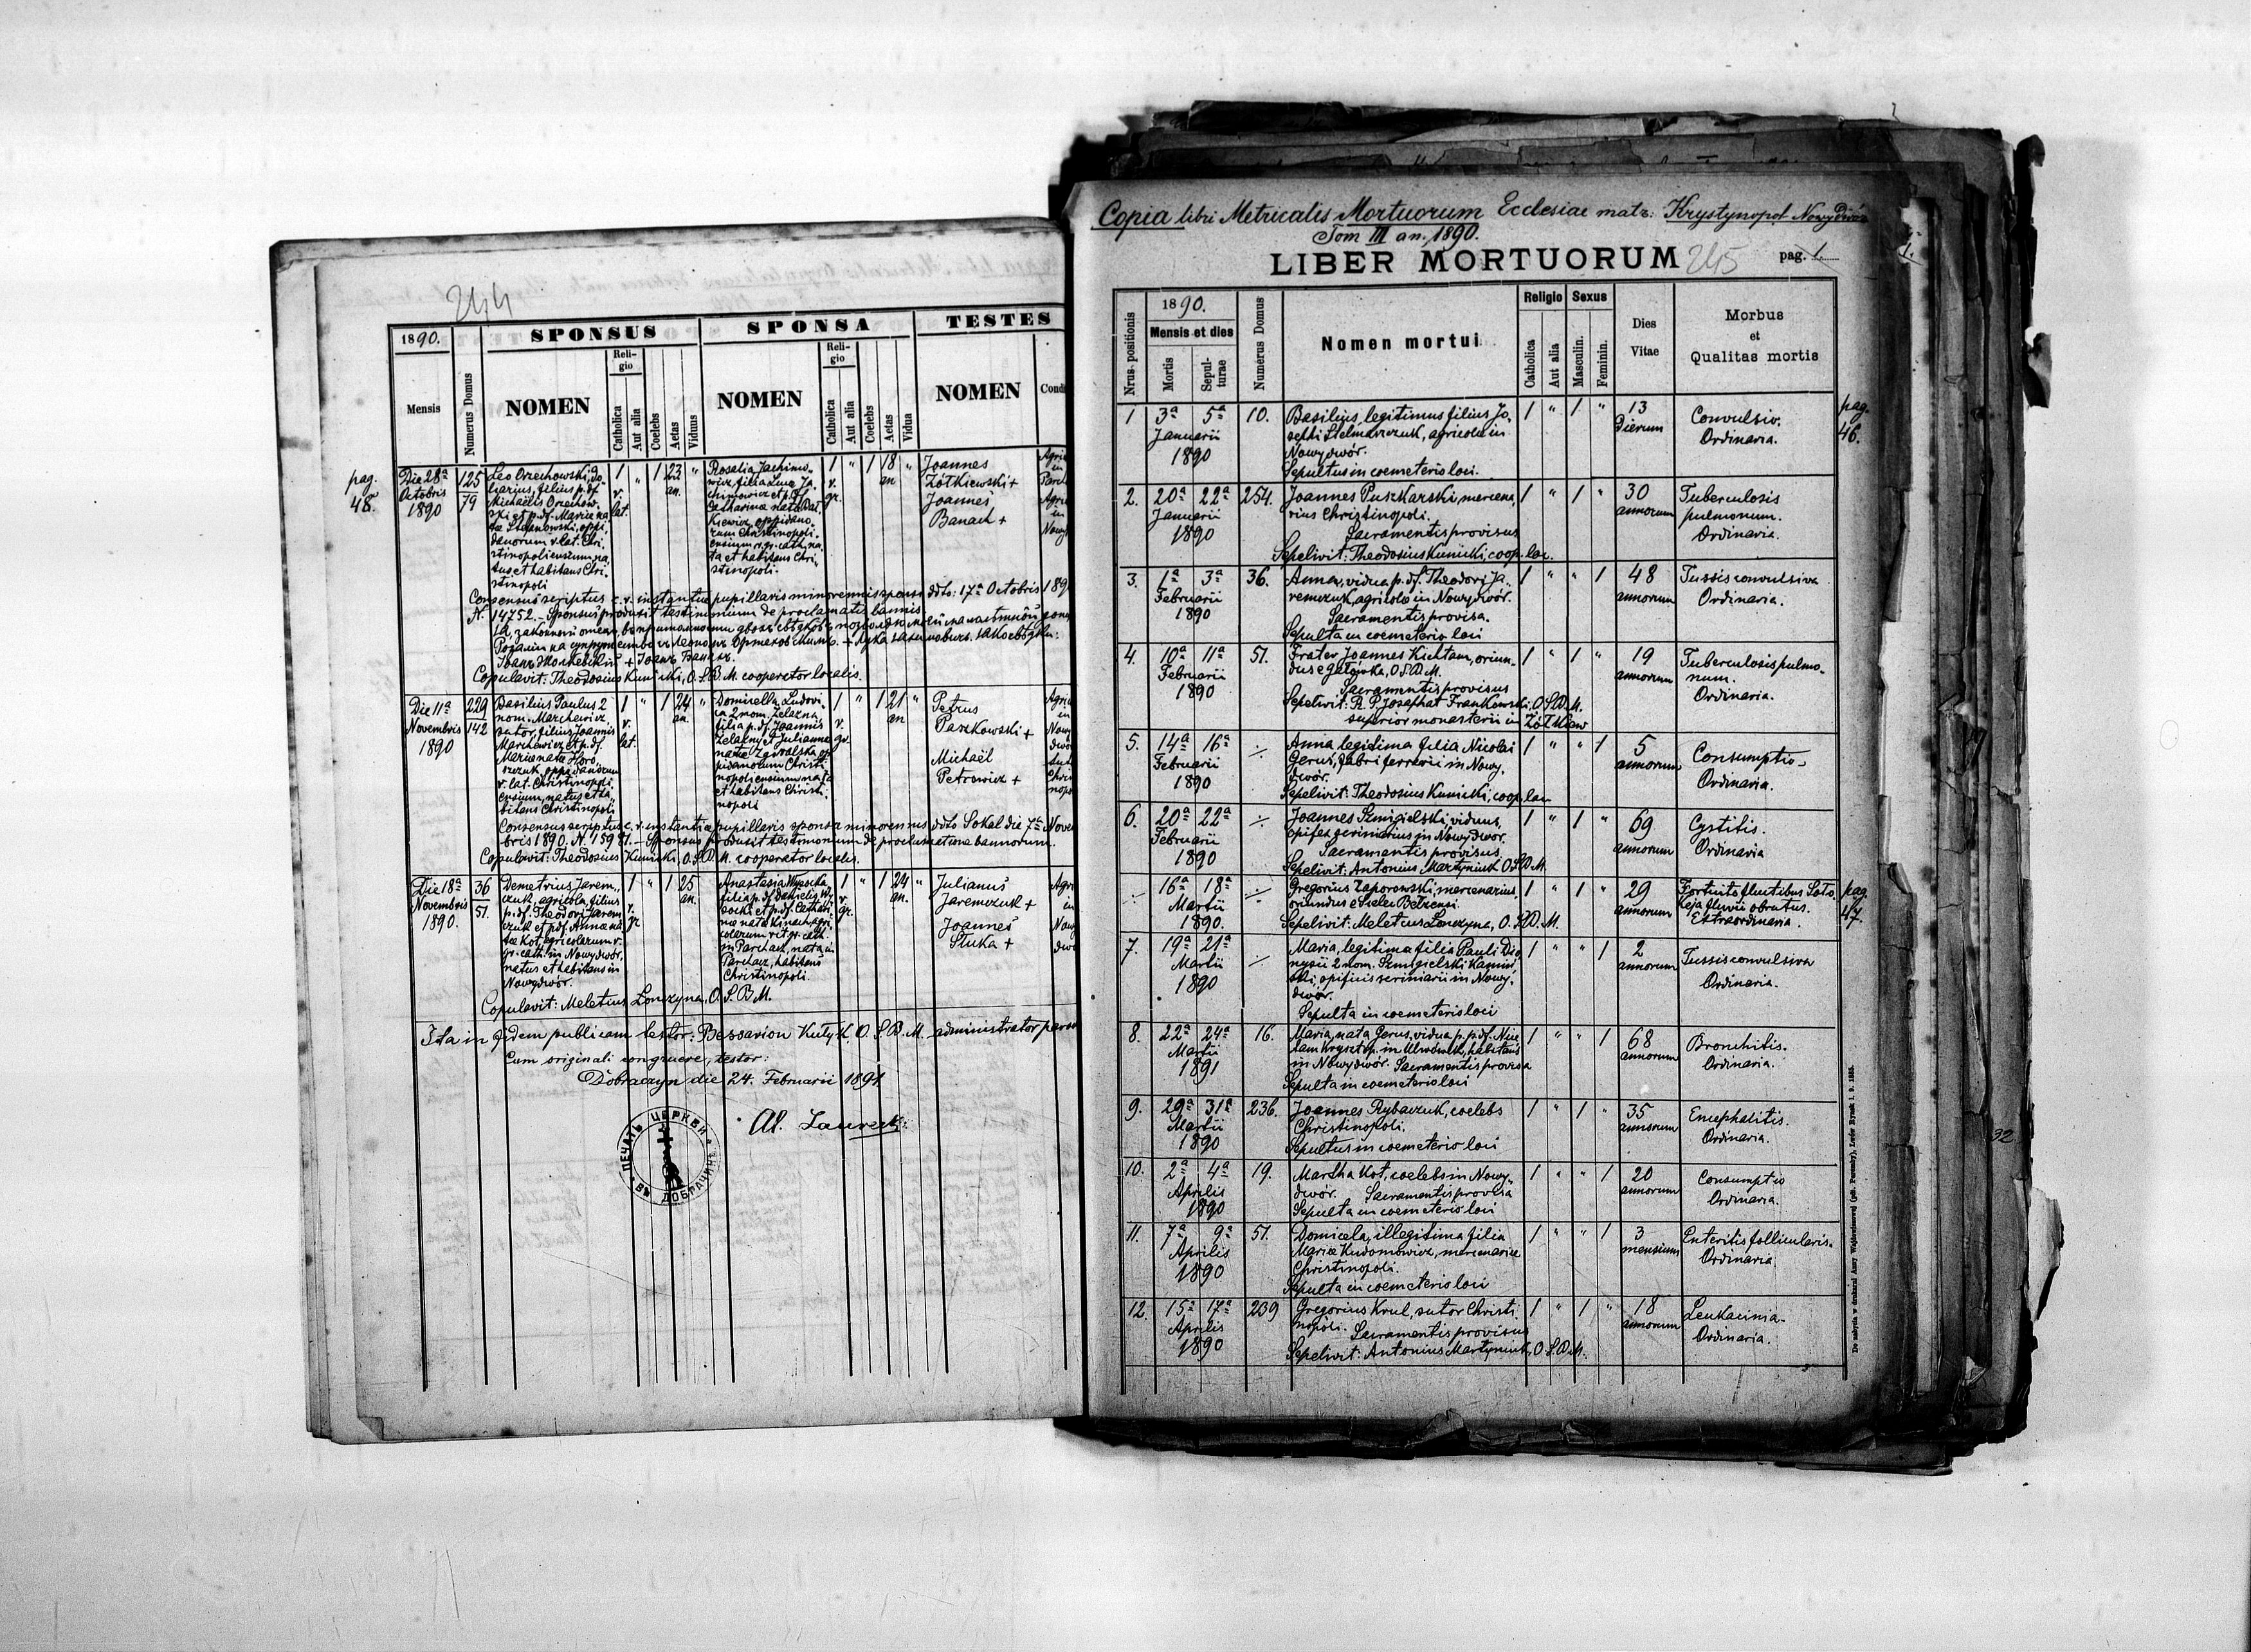 244
1890.
SPONSUS
SPONSA
TESTES
Mensis
Numerus Domus
NOMEN
Religio
Catholica
Aut alia
Coelebs
Aetas
Viduus
NOMEN
Religio
Catholica
Aut alia
Coelebs
Aetas
Vidua
NOMEN
pag.
48.
Die 28ª
Octobris
1890
125
79
Leo Orzechowski,
filius p. df.
Michaelis Orzechow-
ski et p. df. Mariae na-
tae Stefanowski, oppi-
danorum r. lat. Chri-
stinopoliensium, na-
tus et habitans Chri-
stinopoli
1
r.
lat.
"
1
23
an.
"
Rosalia Jachimo-
wicz, filia Lucae Ja-
chimowicz et p. df.
Catharinae natae
oppidano-
rum Christinopoli-
ensium r. gr. cath. na-
ta et habitans Chri-
stinopoli.
1
r.
gr.
"
1
18
an
"
Joannes
Żółkiewski +
Joannes
Banach +
Consensus scriptus c. r. instantiae pupillaris minorennis sponsi ddto: 17ª Octobris 189
N. 14752. – Sponsus produxit testimonium de proclamatis bannis.
Copulavit: Theodosius Kunicki, O. S. B. M. cooperator localis.
Die 11ª
Novembris
1890
229
142
Basilius Paulus 2
nom. Marchewicz,
sutor, filius Joannis
Marchewicz et p. df.
Mariae natae Horo-
szczuk, oppidanorum
r. lat. Christinopoli-
ensium, natus et ha-
bitans Christinopoli
1
r.
lat.
"
1
24
an.
"
Domicella Ludovi-
ca 2 nom. Żelazna,
filia p. df. Joannis
Żelazny et Julianna
natae Zawalska op-
pidanorum Christi-
nopoliensium nata
et habitans Christi-
nopoli
1
r.
gr.
"
1
21
an
"
Petrus
Paszkowski +
Michaël
Petrowicz +
Consensus scriptus c. r. instantiae pupillaris sponsae minorennis ddto Sokal die 7ª Novem
bris 1890. N. 15981. – Sponsus produxit testimonium de proclamatione bannorum.
Copulavit: Theodosius Kunicki, O. S. B. M. cooperator localis.
Die 18ª
Novembris
1890.
36
51.
Demetrius Jarem-
czuk, agricola, filius
p. df. Theodori Jarem-
czuk et p. df. Annae na-
tae Kot, agricolarum r.
gr. cath. in Nowydwór,
natus et habitans in
Nowydwór.
1
r.
gr
"
1
25
an.
"
Anastasia Wysocka
filia p. df. Danielis Wy-
socki et p. df. Cathari-
nae natae agri-
colarum rit. gr. cath.
in Parchacz, nata in
Parchacz, habitans
Christinopoli.
1
r.
gr.
"
1
24
an.
"
Julianus
Jaremczuk +
Joannes
Stuka +
Copulavit: Meletius Lonczyna, O. S. B. M.
Ita in fidem publicam testor: Bessarion Kutyk, O. S. B. M. administrator paroc
Cum originali congruere, testor:
Dobraczyn die 24. Februarii 1891.
Al. Laurecki.
ПЕЧАТЬ ЦЕРКВИ
ВЪ ДОБРАЧИНѢ
Copia libri Metricalis Mortuorum Ecclesiae matr: Krystynopol Nowydwór
Tom III an. 1890.
LIBER MORTUORUM
245
pag. 1.
Nrus positionis
1890.
Mensis et dies
Mortis
Sepulturae
Numerus Domus
Nomen mortui
Religio
Catholica
Aut alia
Sexus
Masculin.
Feminin.
Dies
Vitae
Morbus
et
Qualitas mortis
1
3ª 5ª
Januarii
1890
10.
Basilius, legitimus filius Jo-
sephi Stelmaszczuk, agricolae in
Nowydwór.
Sepultus in coemeterio loci.
1 " 1 "
13
Dierum
Convulsio.
Ordinaria.
pag.
46.
2.
20ª 22ª
Januarii
1890
254.
Joannes Puszkarski, mercena-
rius Christinopoli.
Sacramentis provisus
Sepelivit: Theodosius Kunicki, coop. loc.
1 " 1 "
30
annorum
Tuberculosis
pulmonum.
Ordinaria.
3.
1ª 3ª
Februarii
1890
36.
Anna, vidua p. df. Theodori Ja-
remczuk, agricolae in Nowydwór.
Sacramentis provisa.
Sepulta in coemeterio loci
1 " " 1
48
annorum
Tussis convulsiva
Ordinaria.
4.
10ª 11ª
Februarii
1890
51.
Frater Joannes Kichtam, oriun-
dus e Gałówka, O. S. B. M.
Sacramentis provisus
Sepelivit: R. P. Josaphat Frankowski, O. S. B. M.
superior monasterii in Żółkiew
1 " 1 "
19
annorum
Tuberculosis pulmo-
num.
Ordinaria.
5.
14ª 16ª
Februarii
1890
÷
Anna legitima filia Nicolai
Gerus, fabri ferrarii in Nowy-
dwór.
Sepelivit: Theodosius Kunicki, coop. loci
1 " " 1
5
annorum
Consumptio
Ordinaria.
6.
20ª 22ª
Februarii
1890
÷
Joannes Szmigielski, viduus,
opifex scriniarius in Nowydwór.
Sacramentis provisus
Sepelivit: Antonius Martyniuk O. S. B. M.
1 " 1 "
69
annorum
Cystitis.
Ordinaria
÷
16ª 18ª
Martii
1890.
÷
Gregorius Zaporowski, mercenarius,
oriundus e Sielec Bełzensi
Sepelivit: Meletius Lonczyna, O. S. B. M.
1 " 1 "
29
annorum
Fortuito fluctibus Soło-
kija fluvii obrutus.
Extraordinaria.
pag.
47.
7.
19ª 21ª
Martii
1890
÷
Maria, legitima filia Pauli Dio-
nysii 2 nom. Szmigielski Kamiń-
ski, opificis scriniarii in Nowy-
dwór.
Sepulta in coemeterio loci
1 " " 1
2
annorum
Tussis convulsiva
Ordinaria.
8.
22ª 24ª
Martii
1891
16.
Maria, nata Gerus, vidua p. p. df. Nice-
tam Kryszt op. in Ulwówek, habitans
in Nowydwór. Sacramentis provisa
Sepulta in coemeterio loci
1 " " 1
68
annorum
Bronchitis.
Ordinaria.
9.
29ª 31ª
Martii
1890
236.
Joannes Rybaczuk, coelebs
Christinopoli.
Sepultus in coemeterio loci
1 " 1 "
35
annorum
Encephalitis.
Ordinaria.
10.
2ª 4ª
Aprilis
1890
19.
Martha Kot, coelebs in Nowy-
dwór. Sacramentis provisa
Sepulta in coemeterio loci
1 " " 1
20
annorum
Consumptio
Ordinaria.
11.
7ª 9ª
Aprilis
1890
51.
Domicela, illegitima filia
Mariae Kudomowicz, mercenariae
Christinopoli.
Sepulta in coemeterio loci
1 " " 1
3
mensium
Enteritis follicularis.
Ordinaria
12.
15ª 17ª
Aprilis
1890
239
Gregorius Krul, sutor Christi-
nopoli. Sacramentis provisus
Sepelivit: Antonius Martyniuk, O. S. B. M.
1 " 1 "
18
annorum
Leukaemia.
Ordinaria.
32